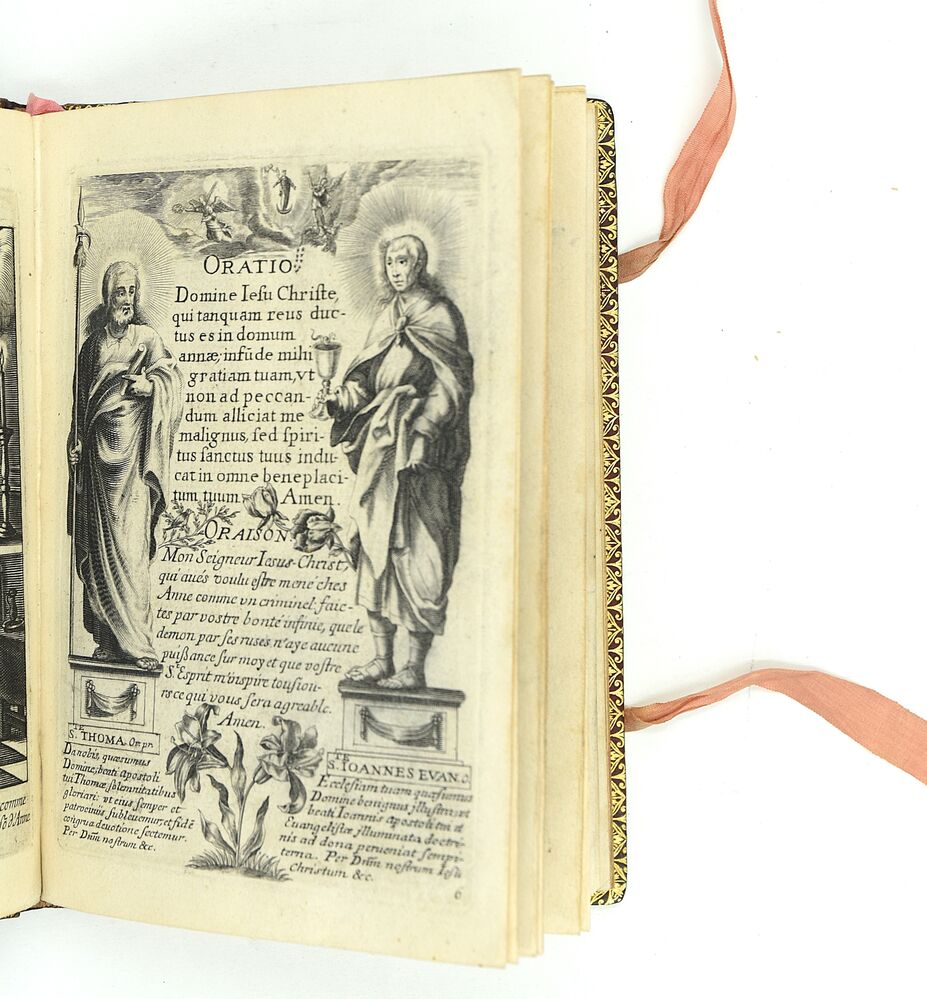 ORATIO
Domine Iesu Christe,
qui tanquam reus duc-
tus es in domum
annæ, infūde mihi
gratiam tuam, vt
non ad peccan-
dum alliciat me
malignus, sed spiri-
tus sanctus tuus indu-
cat in omne beneplaci-
tum tuum. Amen.
ORAISON.
Mon Seigneur Iesus-Christ,
qui aués voulu estre mené ches
Anne comme vn criminel: faic-
tes par vostre bonté infinie, que le
demon par ses ruses n'aye aucune
puissance sur moy et que vostre
S. Esprit m'inspire tousiou-
rs ce qui vous sera agreable.
Amen.
S.TE THOMA. Or. pr.
Da nobis, quæsumus
Domine, beati apostoli
tui Thomæ, solemnitatibus
gloriari: vt eius semper et
patrocinijs subleuemur, et fidē
congrua deuotione sectemur.
Per Dñm nostrum &c.
S.TE IOANNES EVAN. o.
Ecclesiam tuam quæsumus
Domine benignus illustra, vt
beati Ioannis apostoli tui et
Euangelistæ illuminata doctri-
nis ad dona perueniat sempi-
terna. Per Dñm nostrum Iesū
Christum &c.
6
comme
d'Anne